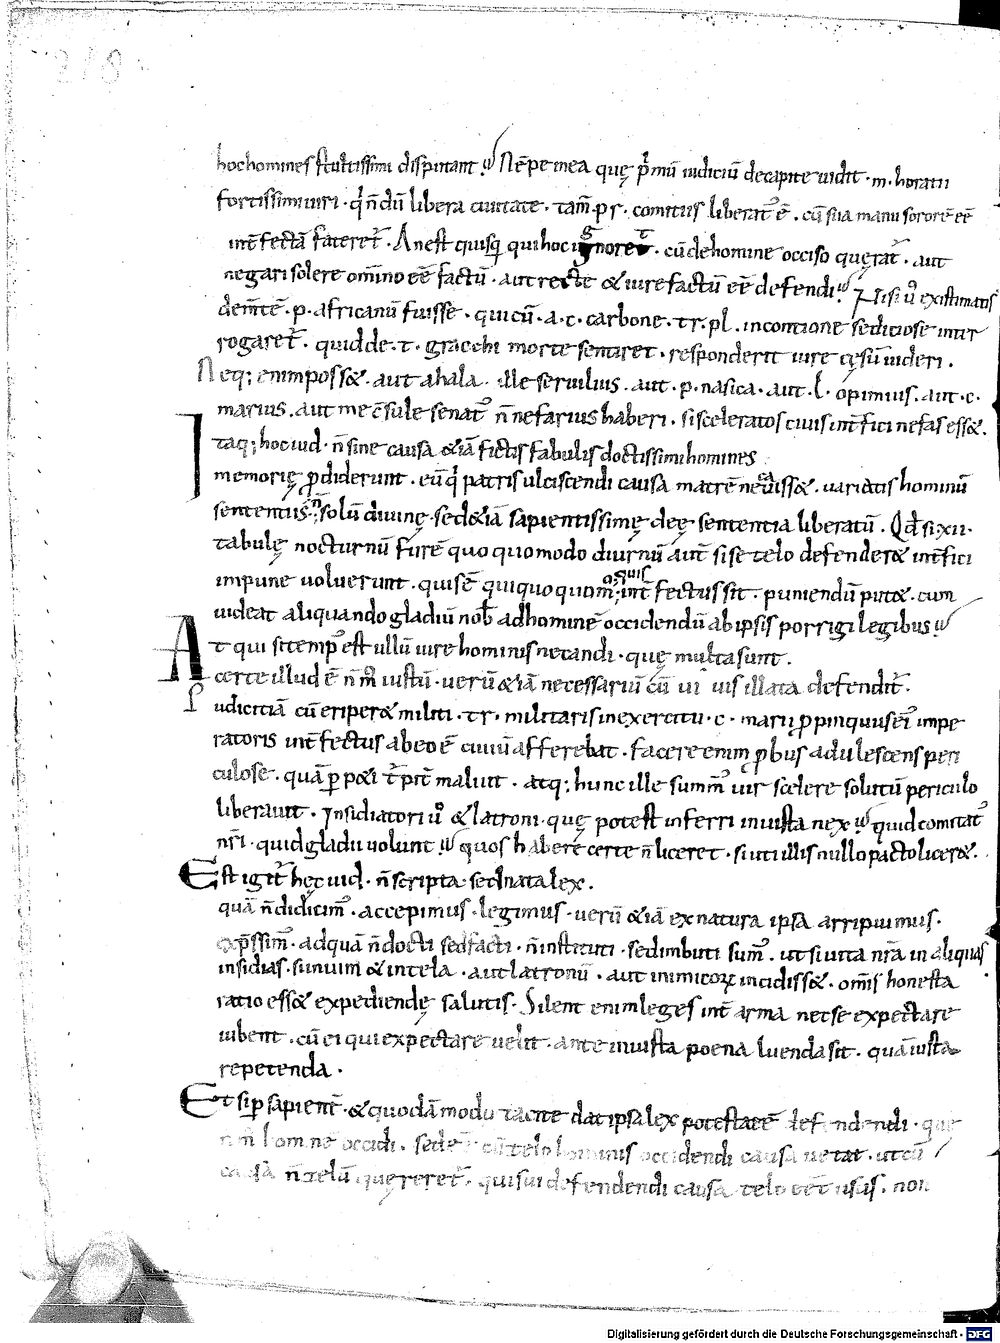 218
hoc homines stultissimi disputant. Nēpe in ea quę p̄mū iudiciū de capite uidit · m · horatii
fortissimi uiri · q̄ nōdū libera ciuitate · tam̄ p r · comitiis liberatꝰ ē · cū sua manu sororē eē
int̄fectā fateret᷑ · An est quisq̄ qui hoc ignoret · cū de homine occiso quęrat᷑ · aut
negari solere om̄ino eē factū · aut recte & iure factū eē defendi. Nisi u͛ existimatis
dem̄tē · p · africanū fuisse · qui cū · a · c · carbone · tr · pl · in contione seditiose int̄r
rogaret᷑ · quid de · t · gracchi morte sentiret · respondert iure cęsū uideri ·
Neq; enim poss& · aut ahala · ille seruilius · aut · p · nasica · aut · l · opimius · aut · c ·
marius · aut me c̄sule senatꝰ n̄ nefarius haberi · si sceleratos ciuis int̄fici nefas ess& ·
Itaq; hoc iud · n̄ sine causa &iā fictis fabulis doctissimi homines
memorię ꝓdiderunt · eū q̄ patris ulciscendi causa matrē necauiss& · uariatis hominū
sententiis n̄ solū diuinę · sed &iā sapientissimę deę sententia liberatū · Qd̄ si · xii ·
tabulę nocturnū furē quoquo modo diurnū aut̄ si se telo defender& int̄fici
impune uoluerunt · quis ē qui quoquo m̊ quis int̄fectus sit · puniendū put& · cum
uideat aliquando gladiū nob̄ ad hominē occidendū ab ipsis porrigi legibus
At qui si tempꝰ est ullū iure hominis necandi · quę multa sunt ·
certe illud ē n̄ m̊ iustū · uerū &iā necessariū cū ui uis illata defendit᷑ ·
Pudicitiā cū eriper& militi · tr · militaris in exercitu · c · marii ꝓpinquus eiꝰ impe
ratoris int̄fectus ab eo ē cui uī afferebat · facere enim ꝓbus adulescens peri
culose · quā ꝑpeti t̄pit̄ maluit · atq; hunc ille summꝰ uir scelere solutū periculo
liberauit · Insidiatori u͛ & latroni · quę potest inferri iniusta nex quid comitatꝰ
nr̄i · quid gladii uolunt quos habere certe n̄ liceret · si uti illis nullo pacto licer& ·
Est igit᷑ hęc iud · n̄ scripta · sed nata lex ·
quā n̄ didicimꝰ · accepimus · legimus · uerū &iā ex natura ipsa arripuimus ·
exp̄ssimꝰ · ad quā n̄ docti sed facti · n̄ instituti · sed imbuti sumꝰ · ut si uita nr̄a in aliquas
insidias · si in uim & in tela · aut latronū · aut inimicoꝝ incidiss& · om̄is honesta
ratio ess& expediendę salutis · Silent enim leges int̄ arma nec se expectare
iubent · cū ei qui expectare uelit · ante iniusta poena luenda sit · quā iusta
repetenda ·
Et si ꝑ sapient̄ · & quodā modo tacite dat ipsa lex potestatē defendendi · quę
n̄ hominē occidi · sed eē cū telo hominis occidendi causa uetat · ut cū
causa n̄ telū quęreret᷑ · qui sui defendendi causa telo eēt usus · non
Digitalisierung gefördert durch die Deutsche Forschungsgemeinschaft - DFG